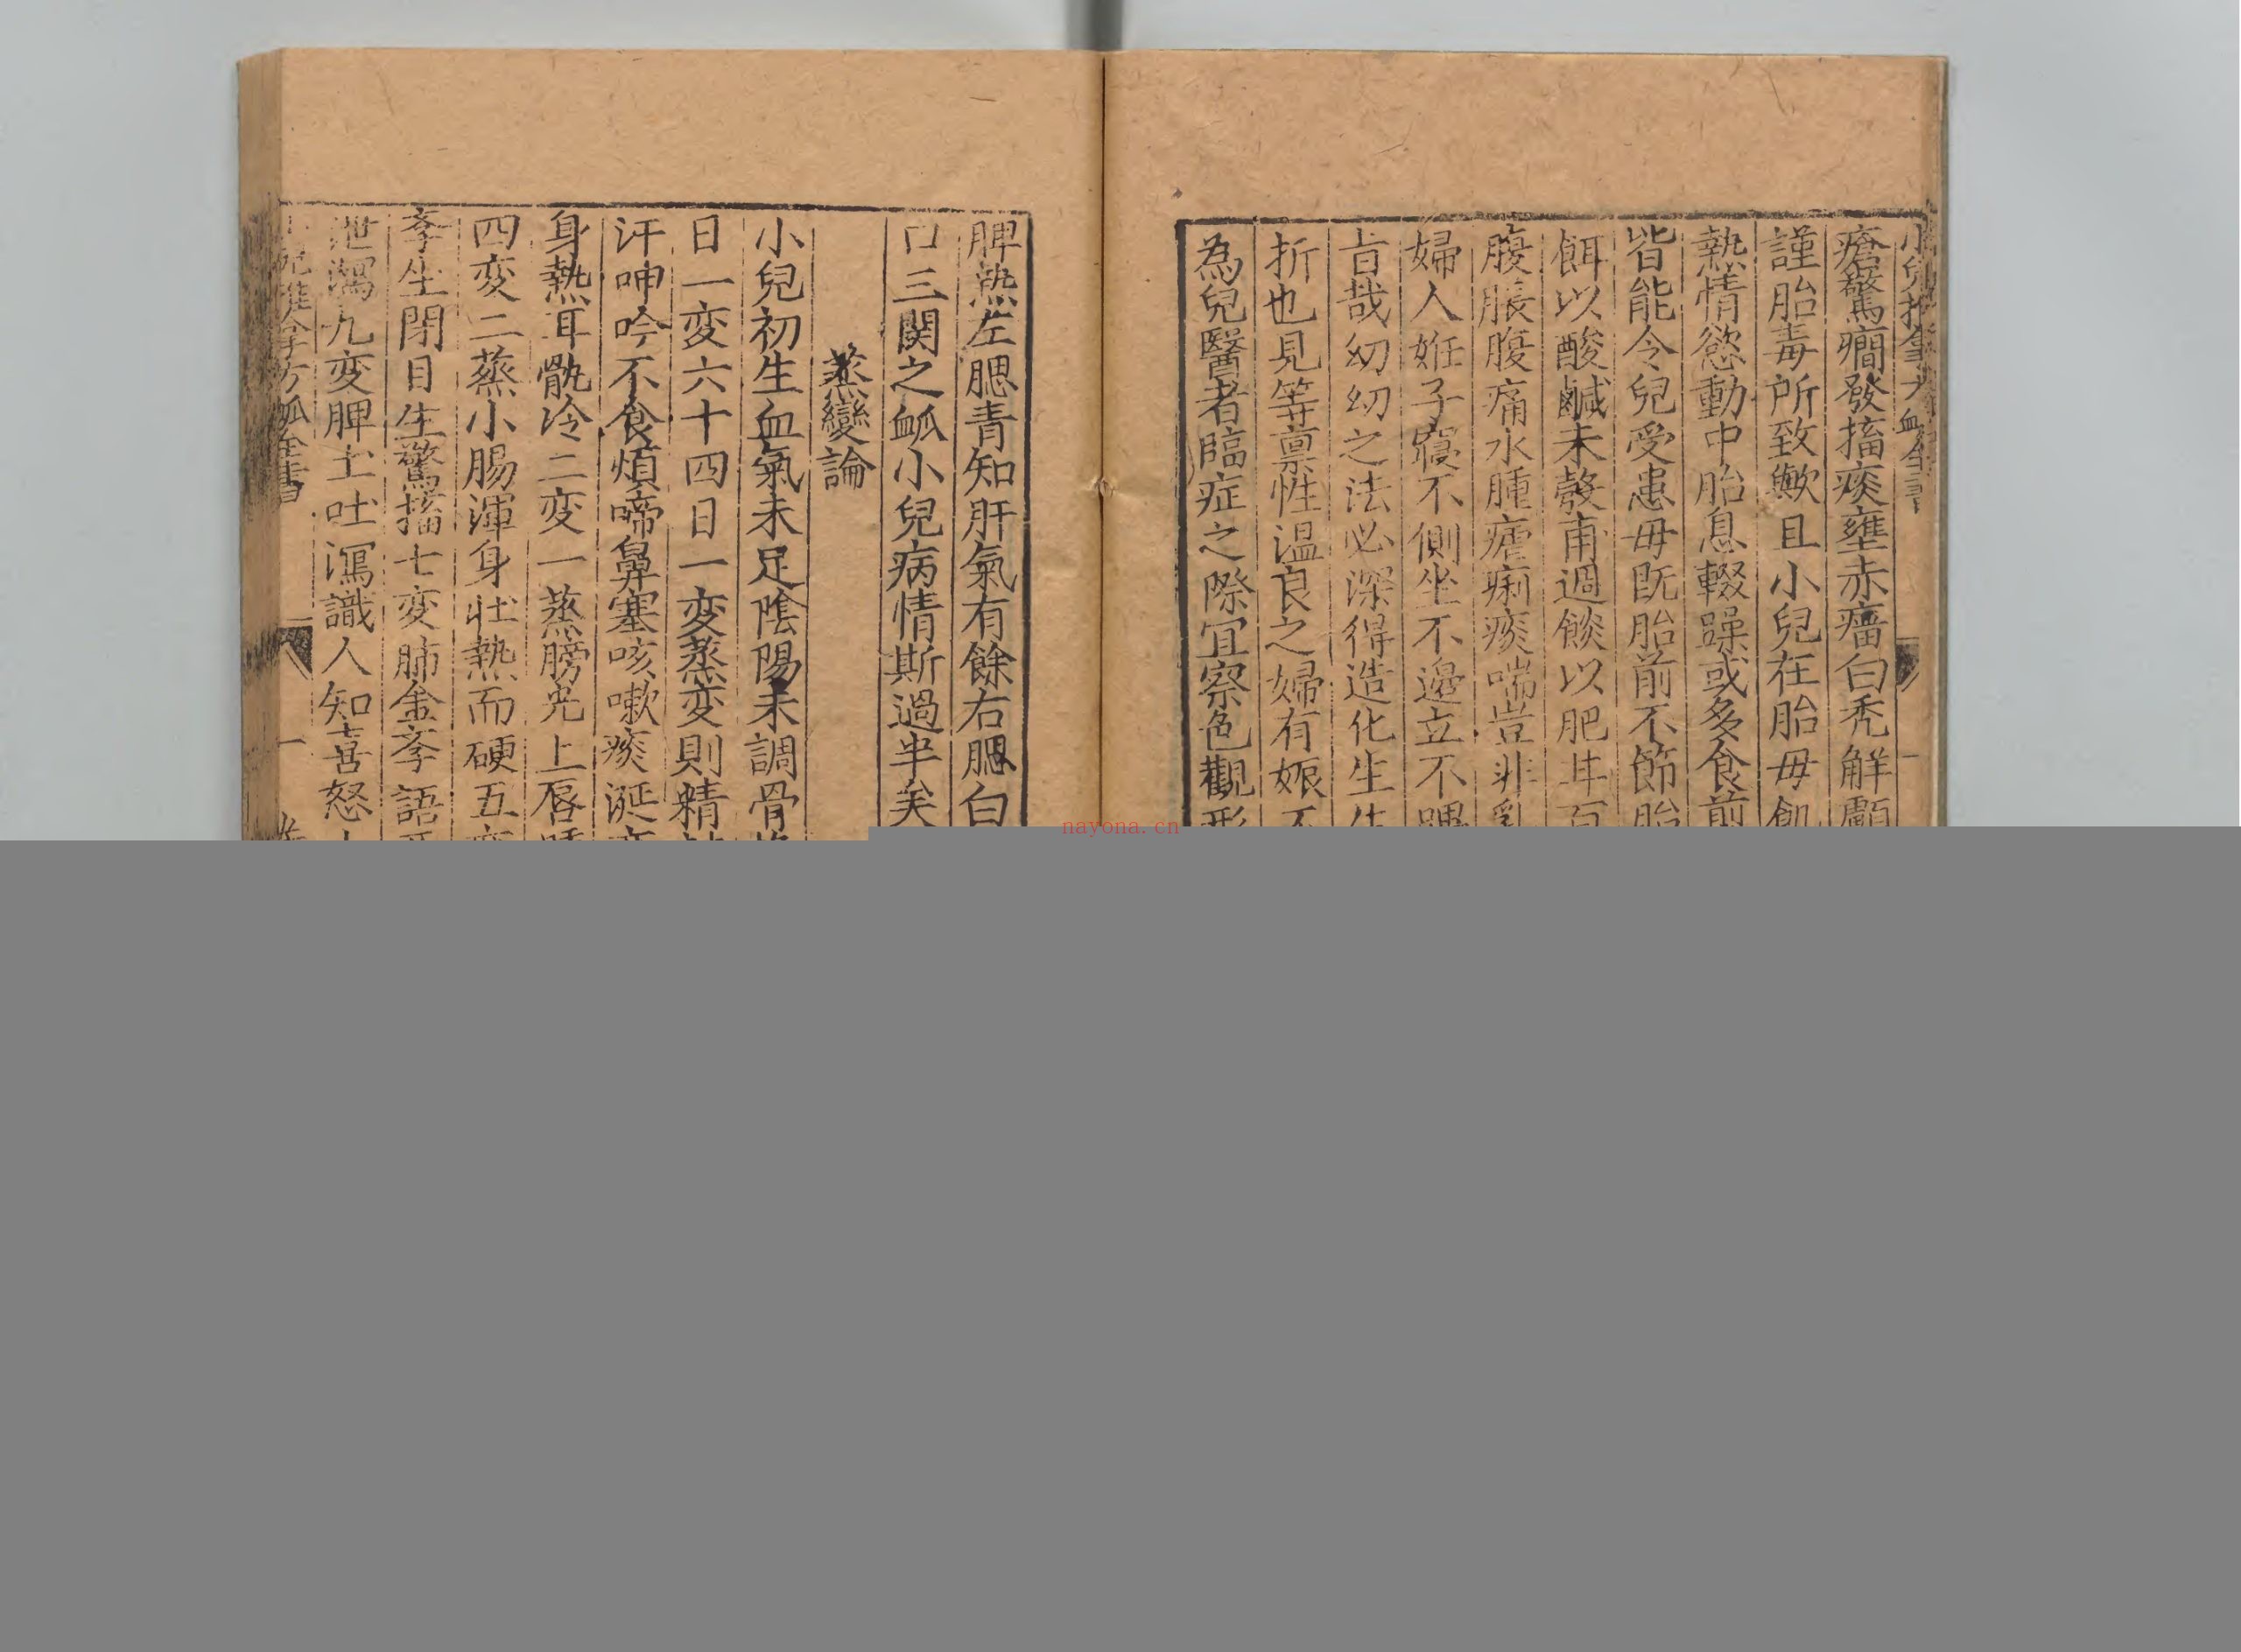 小兒推拿方䘑全書
一
瘡驚癎發搐痰壅赤瘤白禿解顱
謹胎毒所致歟且小兒在胎毋飢
熱情慾動中胎息輟躁或多食前
皆能令兒受患毋既胎前不節胎
餌以酸鹹未彀甫週餤以肥
腹脹腹痛水腫瘧痢痰喘豈非乳
婦人姙子寢不側坐不邉立不
旨哉幼幼之法必深得造化生生
折也見等禀性溫良之婦有娠不
為兒醫者臨症之際宜察色觀形
脾熱左腮青知肝氣有餘右腮白
口三関之䘑小兒病情斯過半矣
蒸變論
小兒初生血氣未足隂陽未調骨
日一变六十四日一变蒸变則精
汗呻吟不食煩啼鼻塞咳嗽痰涎
身熱耳骩冷二变一蒸膀光上唇
四变二蒸小腸渾身壯熱而硬五变
斈坐閉目生驚搐七变肺金斈語
泄瀉九变脾土吐瀉識人知喜怒
小兒推拿方䘑全書
一
nayona.cn